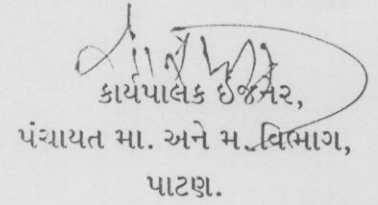 કાર્યપાલક ઈજનેર,
પંચાયત મા. અને મ. વિભાગ,
પાટણ.